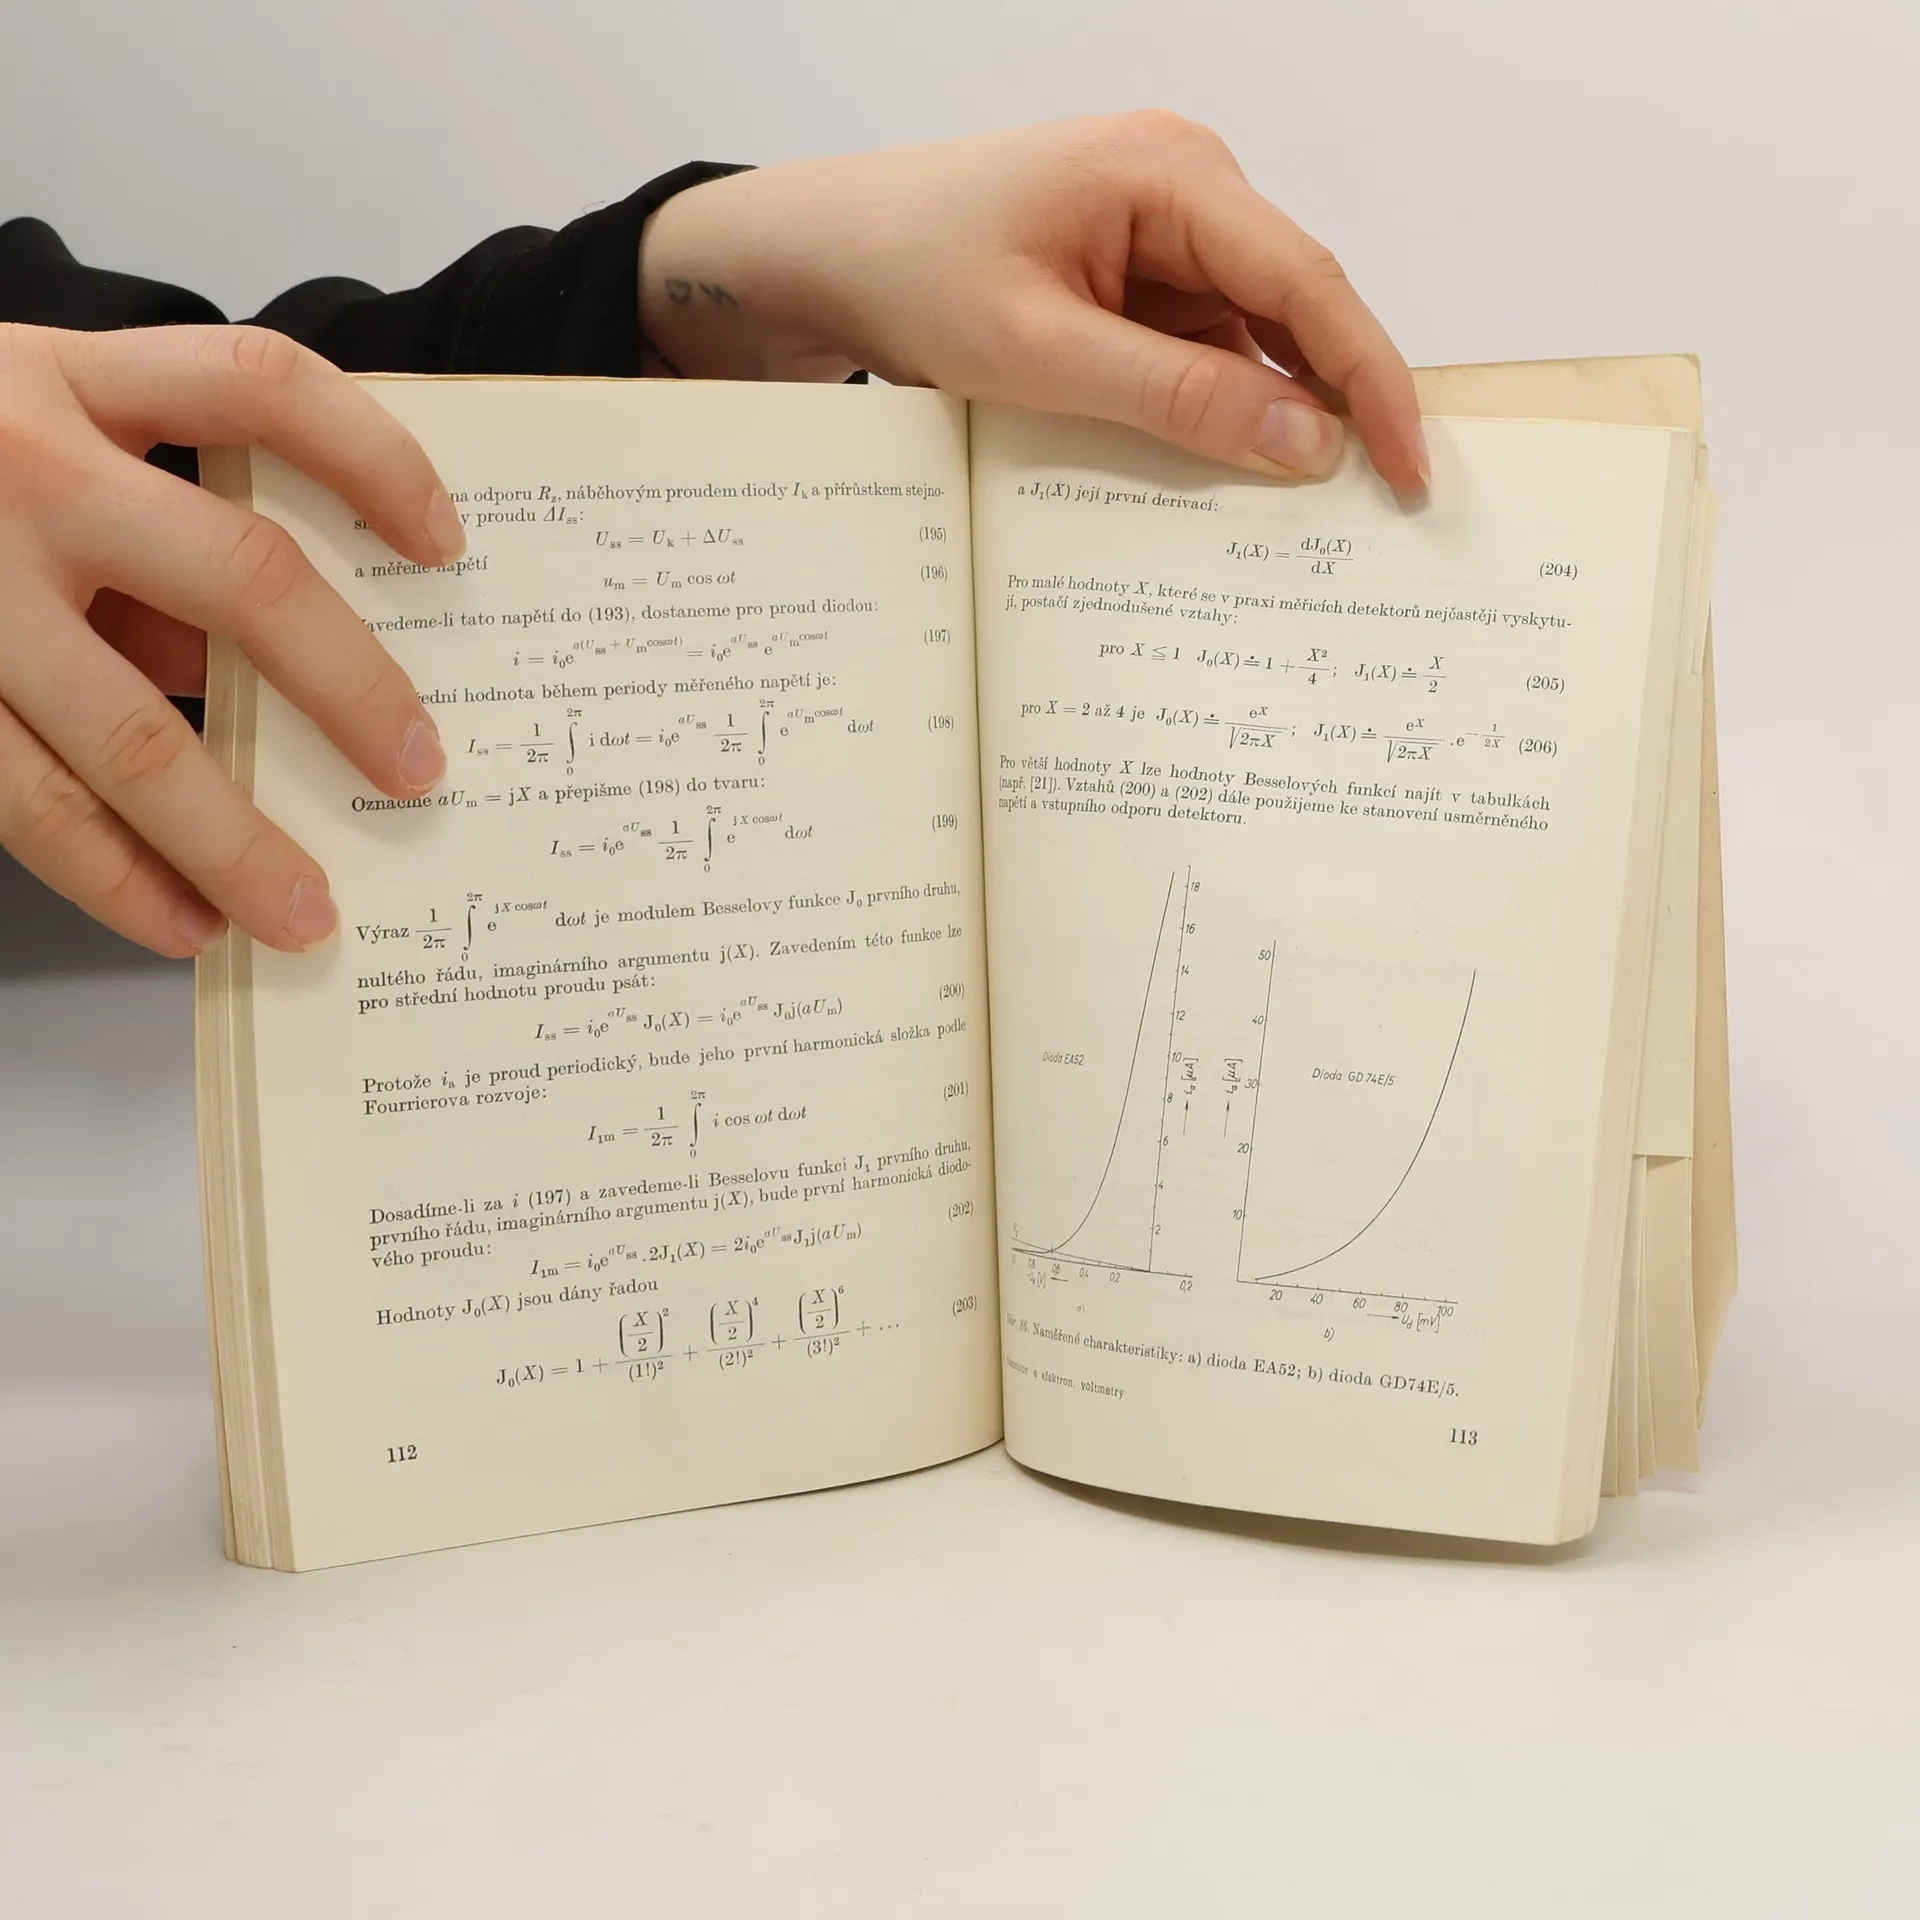 na odporu R_z, náběhovým proudem diody I_k a přírůstkem stejno-
y proudu ΔI_ss:
U_ss = U_k + ΔU_ss (195)
a měřené napětí
u_m = U_m cos ωt (196)
avedeme-li tato napětí do (193), dostaneme pro proud diodou:
i = i_0 e^{a(U_ss + U_m cosωt)} = i_0 e^{aU_ss} e^{aU_m cosωt} (197)
ední hodnota během periody měřeného napětí je:
I_ss = 1/2π ∫_0^{2π} i dωt = i_0 e^{aU_ss} 1/2π ∫_0^{2π} e^{aU_m cosωt} dωt (198)
Označme aU_m = jX a přepišme (198) do tvaru:
I_ss = i_0 e^{aU_ss} 1/2π ∫_0^{2π} e^{jX cosωt} dωt (199)
Výraz 1/2π ∫_0^{2π} e^{jX cosωt} dωt je modulem Besselovy funkce J_0 prvního druhu,
nultého řádu, imaginárního argumentu j(X). Zavedením této funkce lze
pro střední hodnotu proudu psát:
I_ss = i_0 e^{aU_ss} J_0(X) = i_0 e^{aU_ss} J_0 j(aU_m) (200)
Protože i_a je proud periodický, bude jeho první harmonická složka podle
Fourrierova rozvoje:
I_1m = 1/2π ∫_0^{2π} i cos ωt dωt (201)
Dosadíme-li za i (197) a zavedeme-li Besselovu funkci J_1 prvního druhu,
prvního řádu, imaginárního argumentu j(X), bude první harmonická diodo-
vého proudu:
I_1m = i_0 e^{aU_ss} . 2J_1(X) = 2i_0 e^{aU_ss} J_1 j(aU_m) (202)
Hodnoty J_0(X) jsou dány řadou
J_0(X) = 1 + (X/2)^2/(1!)^2 + (X/2)^4/(2!)^2 + (X/2)^6/(3!)^2 + ... (203)
112
a J_1(X) její první derivací:
J_1(X) = dJ_0(X)/dX (204)
Pro malé hodnoty X, které se v praxi měřicích detektorů nejčastěji vyskytu-
jí, postačí zjednodušené vztahy:
pro X ≦ 1 J_0(X) ≐ 1 + X²/4; J_1(X) ≐ X/2 (205)
pro X = 2 až 4 je J_0(X) ≐ e^X/√2πX; J_1(X) ≐ e^X/√2πX . e^{−1/2X} (206)
Pro větší hodnoty X lze hodnoty Besselových funkcí najít v tabulkách
(např. [21]). Vztahů (200) a (202) dále použijeme ke stanovení usměrněného
napětí a vstupního odporu detektoru.
18
16
14
12
10
8
6
4
2
i_a [μA]
Dioda EA52
0,8 0,6 0,4 0,2 0,2
-U_a [V]
a)
50
40
30
20
10
i_a [μA]
Dioda GD 74E/5
20 40 60 80 100
U_d [mV]
b)
86. Naměřené charakteristiky: a) dioda EA52; b) dioda GD74E/5.
a elektron. voltmetry
113